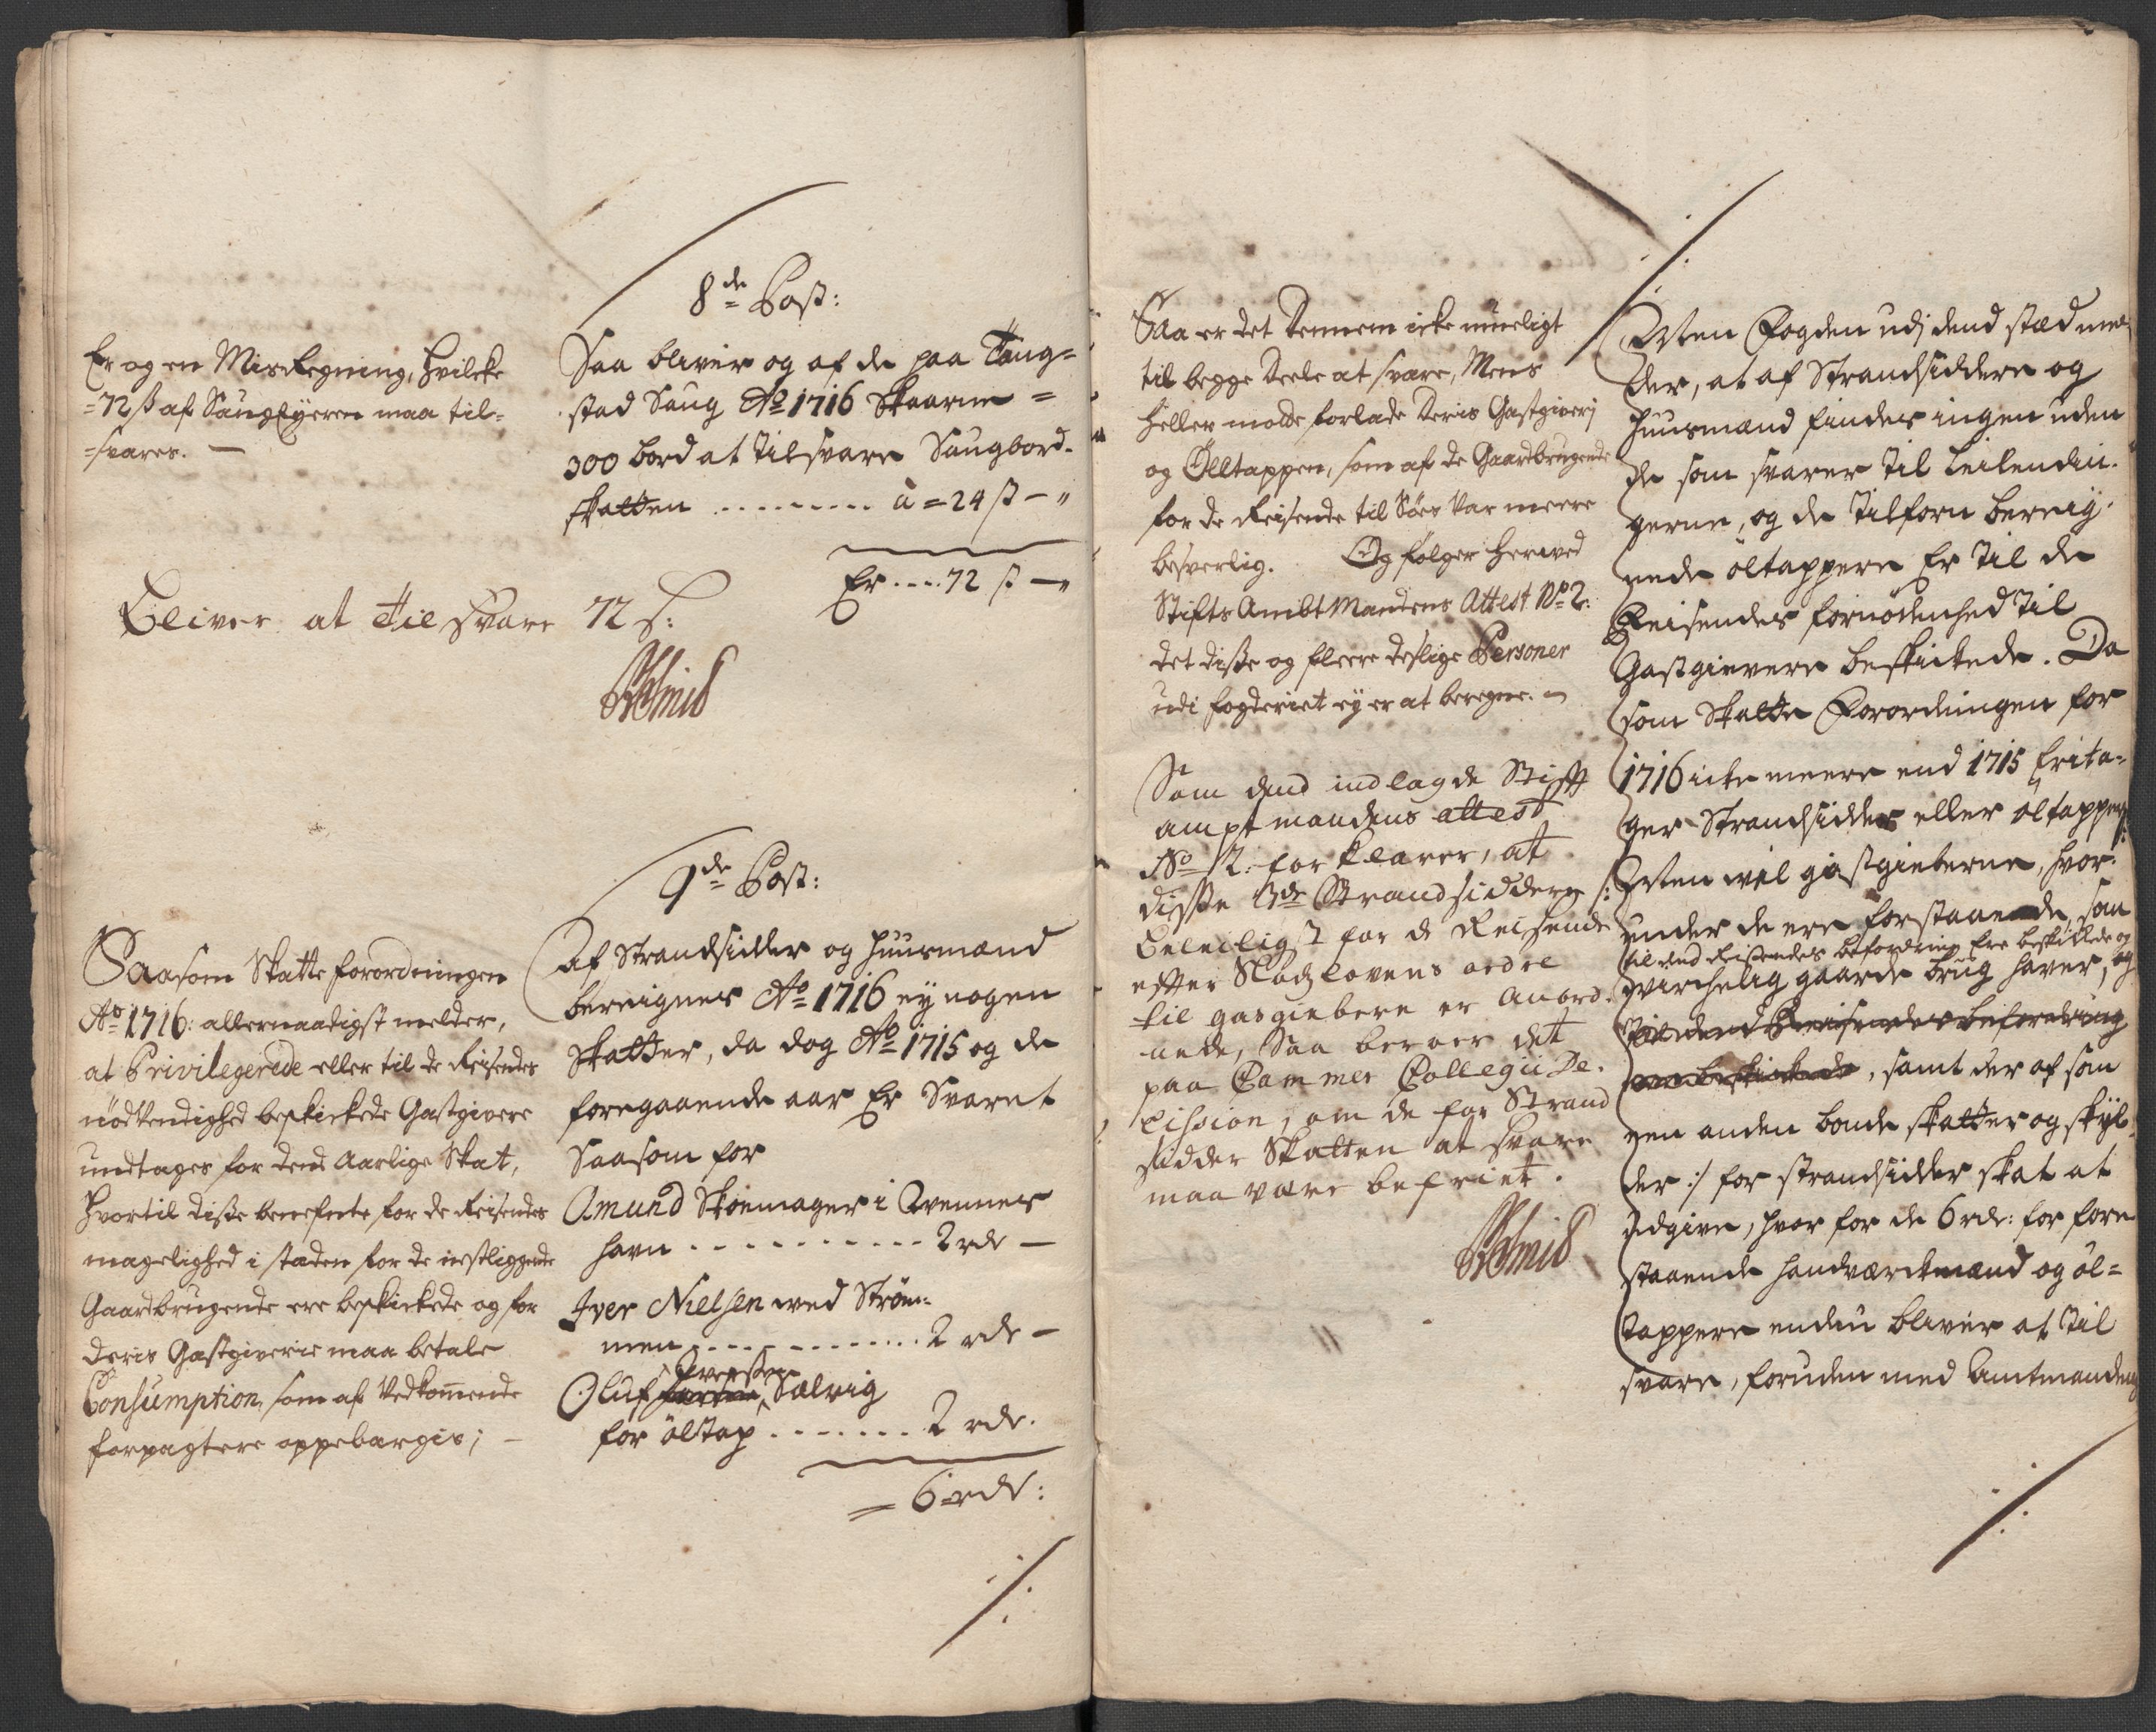 8de Post:
Er og en Misregning, hvilcke
=72 ß af Saug Eyeren maa til=
=svares. —
Saa bliver og af de paa Tang=
stad Saug Ao 1716 Skaarne =
300 bord at tilsvare Saugbord-
skatten ......... à = 24 ß — "
Er .... 72 ß — "
Bliver at tilsvare 72 s:
9de Post:
Saasom Skatte forordningen
Ao 1716: allernaadigst melder,
at Privilegerede eller til de Reisendes
nødvendighed beskickede Gastgivere
undtages for dend Aarlige Skat,
hvortil disse benefnte for de Reisendes
magelighed i stæden for de nestliggende
Gaardbrugende ere beskickede og for
deris Gæstgiverie maa betale
Consumption, som af Vedkommende
forpagtere oppebærgis; —
Af Strandsidder og Huusmænd
bereignes Ao 1716 ey nogen
Skatter, da dog Ao 1715 og de
foregaaende aar Er Svaret
Saasom for
Amund Skoemager i Svennes
havn .......... 2 rdr —
Iver Nielsen ved Strøm-
men ............ 2 rdr —
Oluf Iversen, Sælvig
for ølstap ....... 2 rdr.
= 6 rdr:
Saa er det dennem icke mueligt
til begge deele at svare, Mens
heller motte forlade deris Gastgiverj
og Ølltappen, som af de Gaardbrugende
for de Reisende til Søes var meere
besverlig. Og følger herved
Stifts Ambtmandens Attest No 2:
det disse og fleere deslige Personer
udi fogderiet ey er at beregne.
Som dend indlagde Stifft
amptmandens attest
No 2. forklarer, at
disse 3de Strandsiddere
beleiligst for de Reisende
efter Slodzlovens ordre
til gasgiebere er anord-
nede, Saa beroer det
paa Cammer Collegii De-
cission, om de for Strand
sidder Skatten at svare
maa være befriet.
Men Fogden udj dend stæd mel-
der, at af Strandsiddere og
huusmænd findes ingen uden
de som svarer til Leilendin-
gerne, og de tilforn bereig-
nede øltappere Er til de
Reisendes fornødenhed til
Gastgievere beskickede. Da
som Skatte Forordningen for
1716 icke meere end 1715 Erita-
ger Strandsidder eller øltapper
Men vel gastgieberne, hvor-
under de ere forstaaende, som
til dend Reisendes befordring ere beskickede og
virckelig gaarde brug haver, og
til dend Reisendes befordring
ere beskickede, samt der af som
een anden bonde skatter og skyl-
der :/ for strandsidder skat at
udgive, hvor for de 6 rdr: for fore
staaende handværckmænd og øl=
tappere endnu bliver at til
svare, foruden med Amtmandens